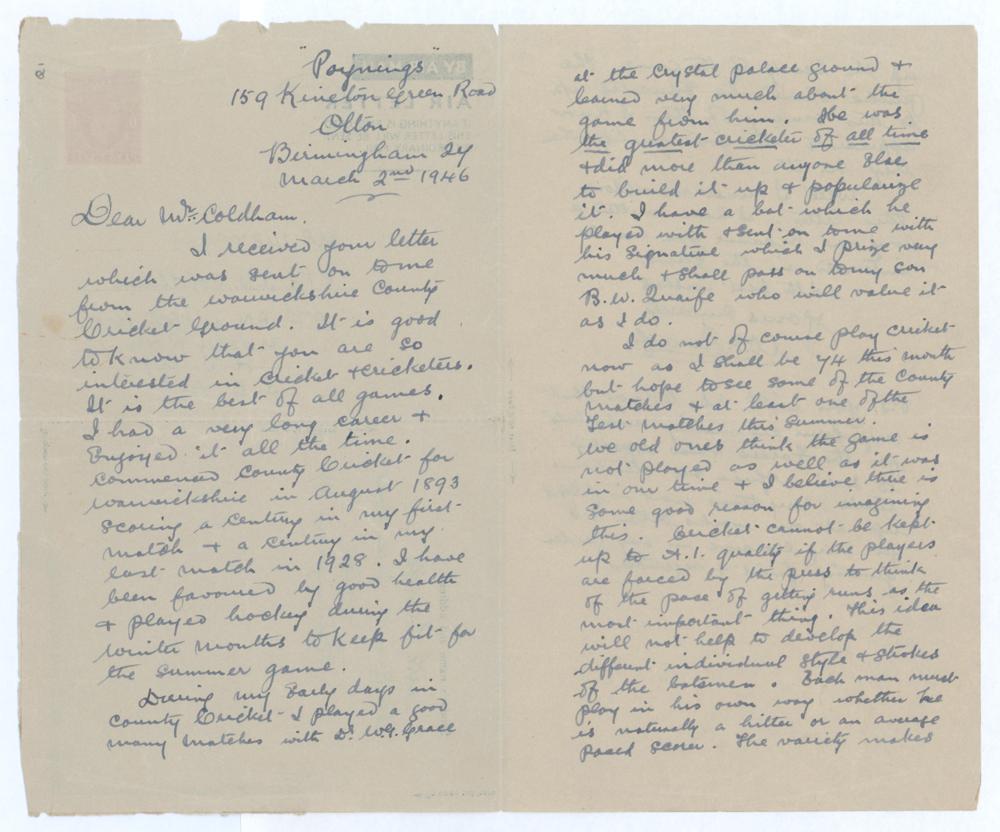 "Poynings"
159 Kineton Green Road
Olton
Birmingham 27
March 2nd 1946
Dear Mr. Coldham.
I received your letter
which was sent on to me
from the Warwickshire County
Cricket Ground. It is good
to know that you are so
interested in cricket & cricketers.
It is the best of all games.
I had a very long career &
Enjoyed it all the time.
Commenced County Cricket for
Warwickshire in August 1893
scoring a century in my first
match & a century in my
last match in 1928. I have
been favoured by good health
& played hockey during the
winter months to keep fit for
the summer game.
During my early days in
County Cricket I played a good
many matches with Dr. W.G. Grace
at the Crystal Palace ground &
learned very much about the
game from him. He was
the greatest cricketer of all time
& did more than anyone else
to build it up & popularize
it. I have a bat which he
played with & sent on to me with
his signature which I prize very
much & shall pass on to my son
B.W. Quaife who will value it
as I do.
I do not of course play cricket
now as I shall be 74 this month
but hope to see some of the County
matches & at least one of the
Test matches this summer.
We old ones think the game is
not played as well as it was
in our time & I believe there is
some good reason for imagining
this. Cricket cannot be kept
up to A.1. quality if the players
are forced by the press to think
of the pace of getting runs as the
most important thing. This idea
will not help to develop the
different individual style & strokes
of the batsmen. Each man must
play in his own way whether he
is naturally a hitter or an average
paced scorer. The variety makes